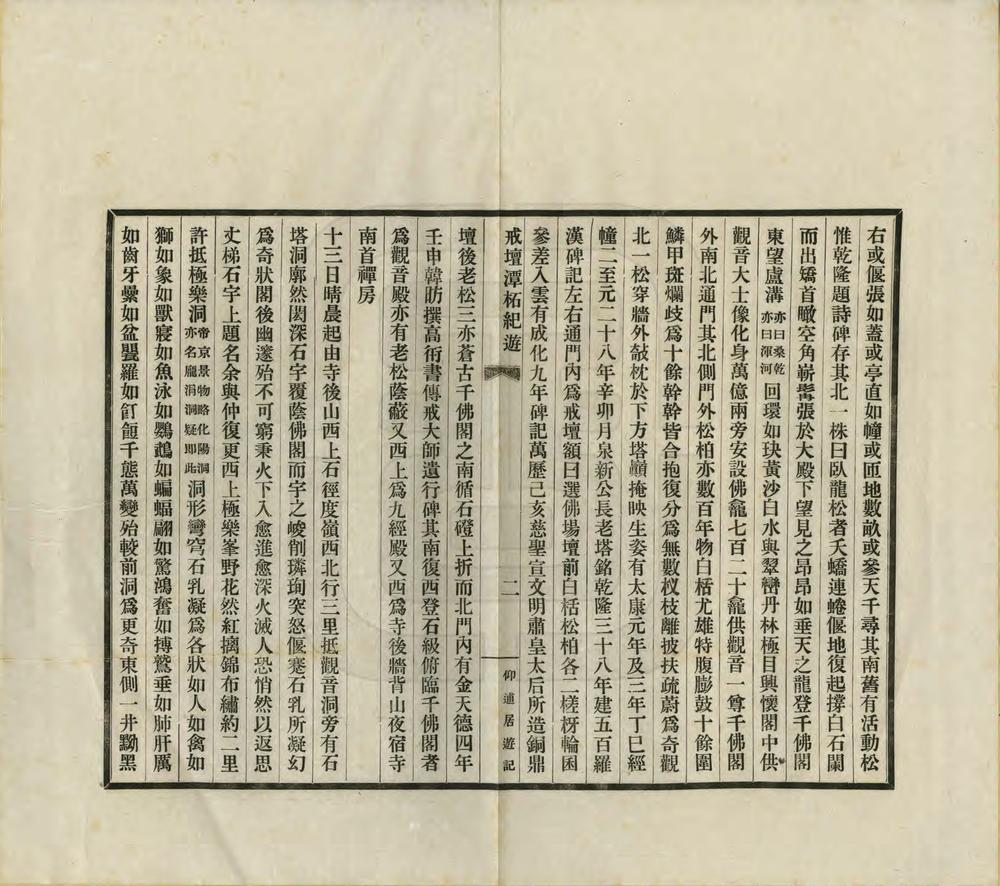 右或偃張如蓋或亭直如幢或匝地數畝或參天千尋其南舊有活動松
惟乾隆題詩碑存其北一株曰臥龍松者夭蟜連蜷偃地復起撐白石闌
而出矯首瞰空角嶄鬐張於大殿下望見之昂昂如垂天之龍登千佛閣
東望盧溝亦曰桑乾亦曰渾河回環如玦黃沙白水與翠巒丹林極目興懷閣中供
觀音大士像化身萬億兩旁安設佛龕七百二十龕供觀音一尊千佛閣
外南北通門其北側門外松柏亦數百年物白栝尤雄特腹膨鼓十餘圍
鱗甲斑爛歧爲十餘幹幹皆合抱復分爲無數杈枝離披扶疏蔚爲奇觀
北一松穿牆外攲枕於下方塔巓掩映生姿有太康元年及三年丁巳經
幢二至元二十八年辛卯月泉新公長老塔銘乾隆三十八年建五百羅
漢碑記左右通門門內爲戒壇額曰選佛場壇前白栝松柏各二槎枒輪囷
參差入雲有成化九年碑記萬歷己亥慈聖宣文明肅皇太后所造銅鼎
戒壇潭柘紀遊 二 仰蘧居遊記
壇後老松三亦蒼古千佛閣之南循石磴上折而北門內有金天德四年
壬申韓昉撰高衎書傳戒大師遺行碑其南復西登石級俯臨千佛閣者
爲觀音殿亦有老松蔭蔽又西上爲九經殿又西爲寺後牆背山夜宿寺
南首禪房
十三日晴晨起由寺後山西上石徑度嶺西北行三里抵觀音洞旁有石
塔洞廓然閎深石宇覆蔭佛閣而宇之峻削璘珣突怒偃蹇石乳所凝幻
爲奇狀閣後幽邃殆不可窮秉火下入愈進愈深火滅人恐悄然以返思
丈梯石宇上題名余與仲復更西上極樂峯野花然紅摛錦布繡約二里
許抵極樂洞帝京景物略化陽洞亦名龐涓洞疑即此洞形彎穹石乳凝爲各狀如人如禽如
獅如象如獸寢如魚泳如鸚鵡如蝙蝠翩如驚鴻奮如搏鷲垂如肺肝厲
如齒牙纍如盆甖羅如飣餖千態萬變殆較前洞爲更奇東側一井黝黑